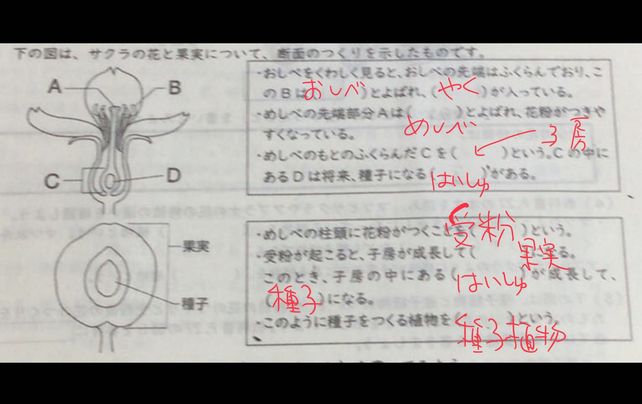 下の図は、サクラの花と果実について、断面のつくりを示したものです。
A B
C D
果実
種子
・おしべをくわしく見ると、おしべの先端はふくらんでおり、こ
のBは おしべ とよばれ、(やく)が入っている。
・めしべの先端部分Aは( めしべ )とよばれ、花粉がつきや
すくなっている。
・めしべのもとのふくらんだCを( )という。Cの中に
子房
あるDは将来、種子になる はいしゅ がある。
・めしべの柱頭に花粉がつくことを(受粉)という。
・受粉が起こると、子房が成長して( 果実 になる。
このとき、子房の中にある(はいしゅ が成長して、
(種子)になる。
このように種子をつくる植物を(種子植物 という。